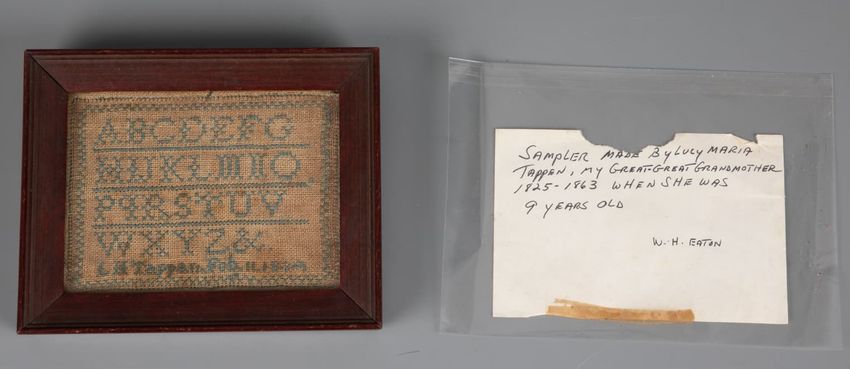 ABCDEFG
HIJKLMNO
PQRSTUV
WXYZ&
L M Tappan Feb 11, 1834
SAMPLER MADE By LUCY MARIA
TAPPEN, MY GREAT-GREAT GRANDMOTHER
1825-1863 WHEN SHE WAS
9 YEARS OLD
W.H. EATON